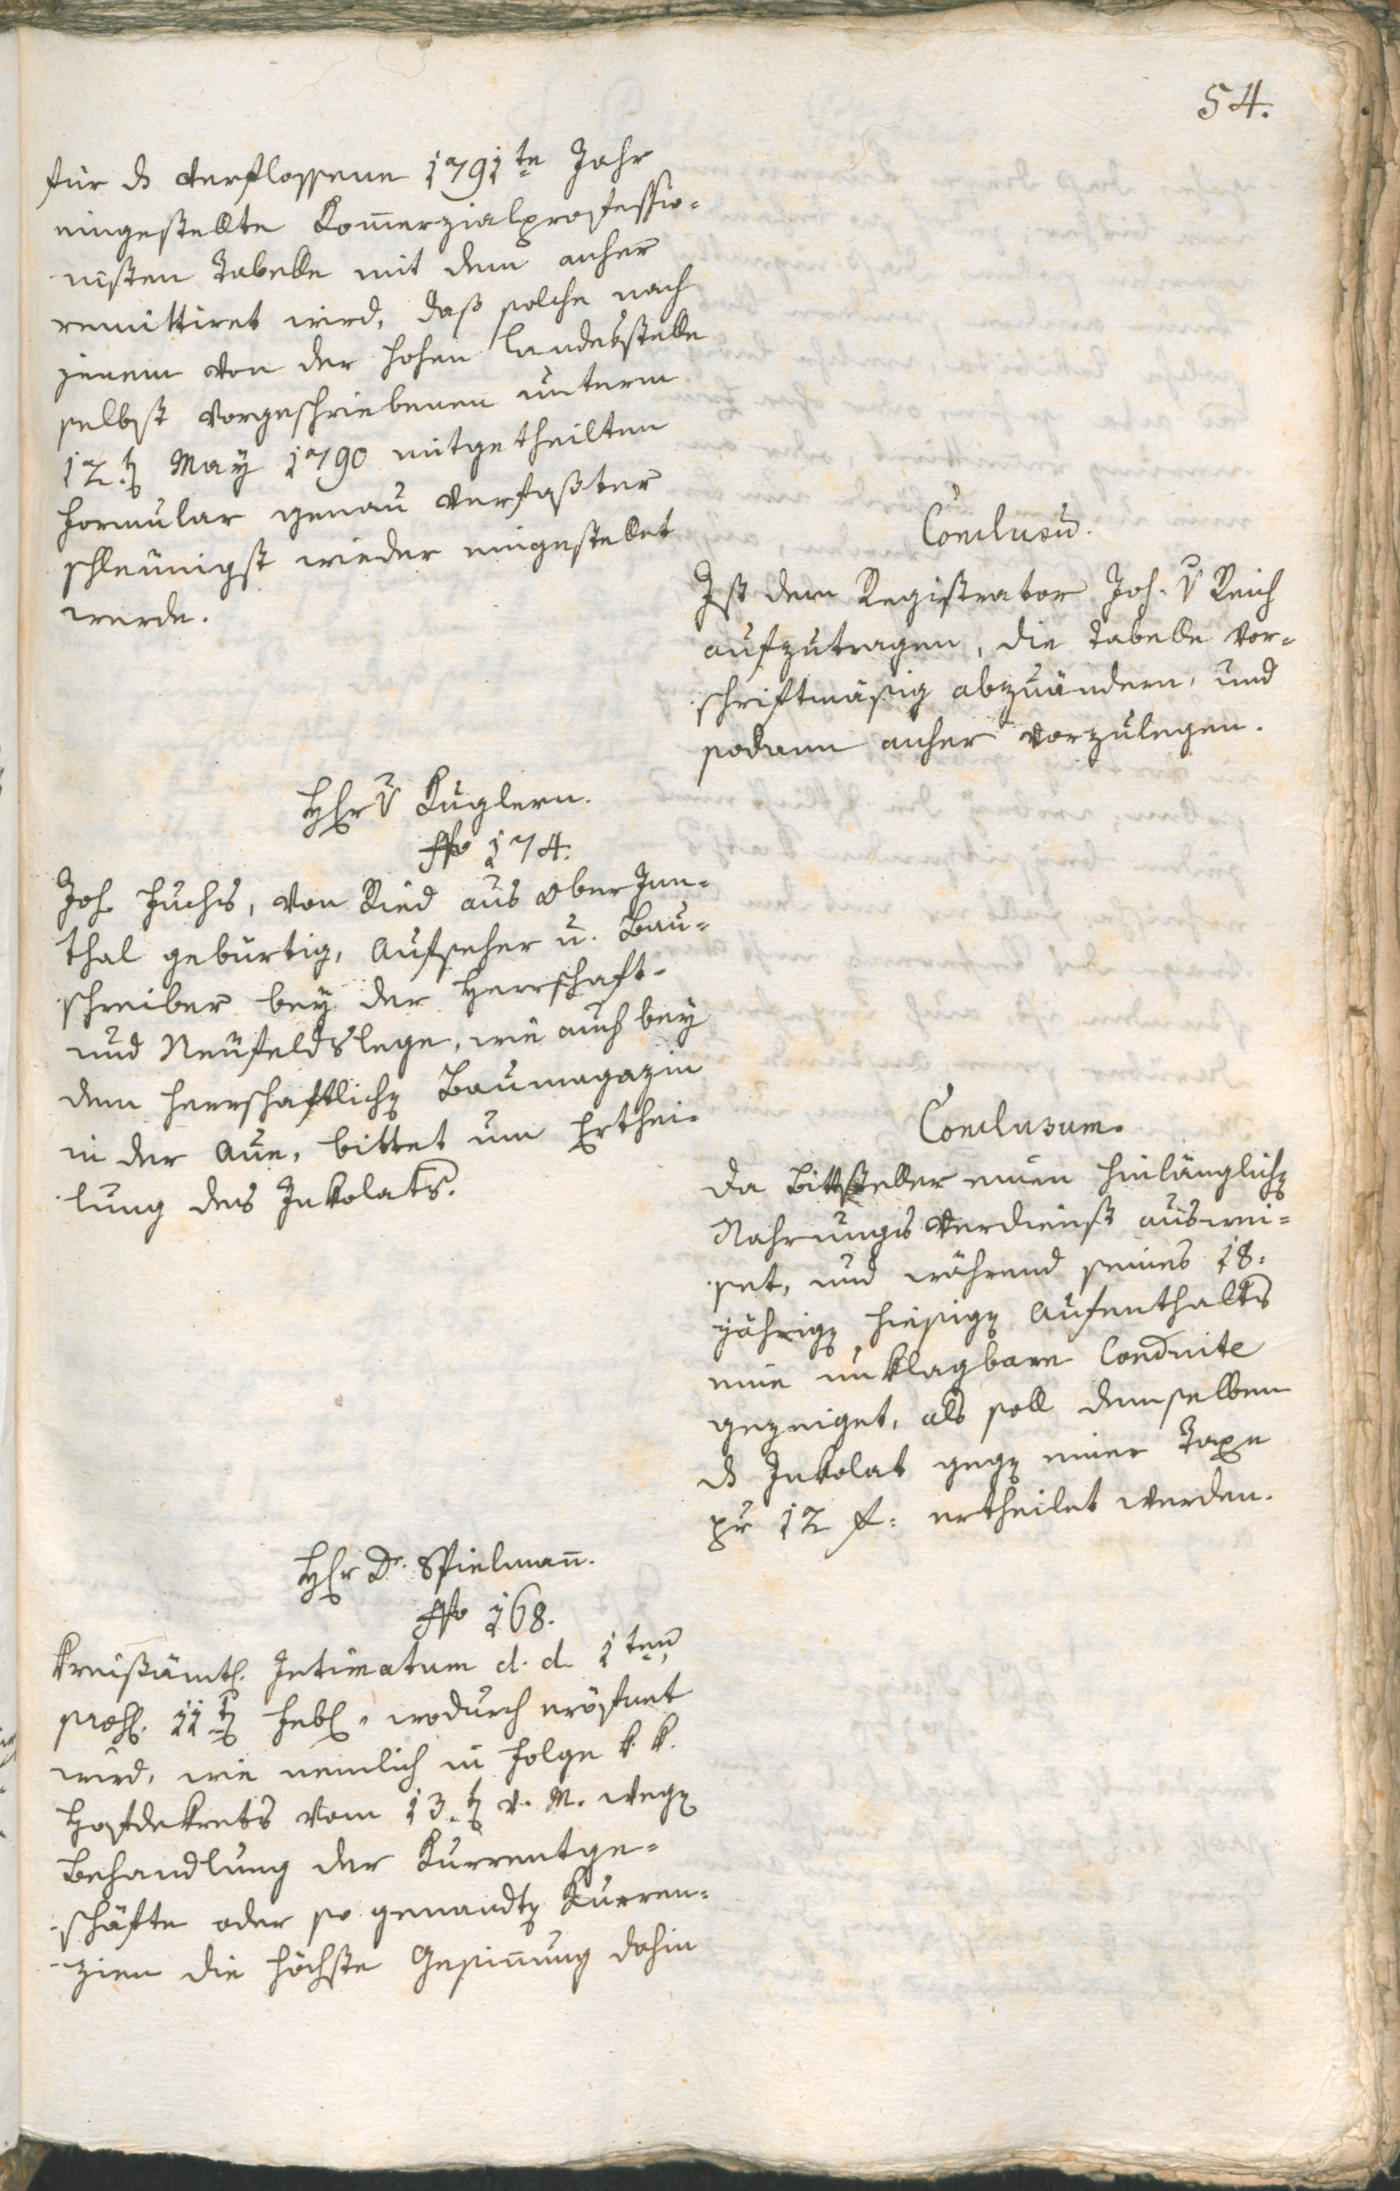 54.
für ds verflossene 1791te Jahr
eingestellte Kom̄erzialprofessio-
nisten Tabelle mit dem anher
remittiret wird, daß solche nach
jenem von der hohen Landesstelle
selbst vorgeschriebenen unterm
12.t May 1790 mitgetheilten
Formular genau verfaßter
schleunigst wieder eingestellet
werde.
Conclusū.
Ist dem Registrator Joh. v Reich
aufzutragen, die Tabelle vor-
schriftmäsig abzuändern, und
sodann anher vorzulegen.
HEr v Kuglern.
No 174.
Joh. Fuchs, von Ried aus Ober Inn-
thal gebürtig, Aufseher u. Bau-
schreiber bey der Herrschaft-
und Neufeldslege, wie auch bey
dem herrschaftlichen Baumagazin
in der Aue, bittet um Erthei-
lung des Inkolats.
Conclusum.
Da Bittsteller einen hinlänglichen
Nahrungs Verdienst auswei-
set, und während seines 18.
jährigen hiesigen Aufenthalts
eine unklagbare Conduite
gezeiget, als soll demselben
ds Inkolat gegen einer Taxe
pr 12 f. ertheilet werden.
HEr Dr. Spielmañ.
No 168.
Kreisämtl. Intimatum d. d. 1ten
11t Febl. wodurch eröfnet
wird, wie nemlich in Folge k. k.
Hofdekrets vom 13.t v. M. wegen
Behandlung der Kurrentge-
schäfte oder so genandten Kurren-
zien die höchste Gesiñung dahin